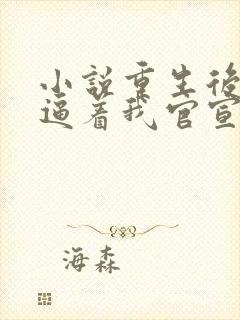 小説重生後
逼着我官宣
海森